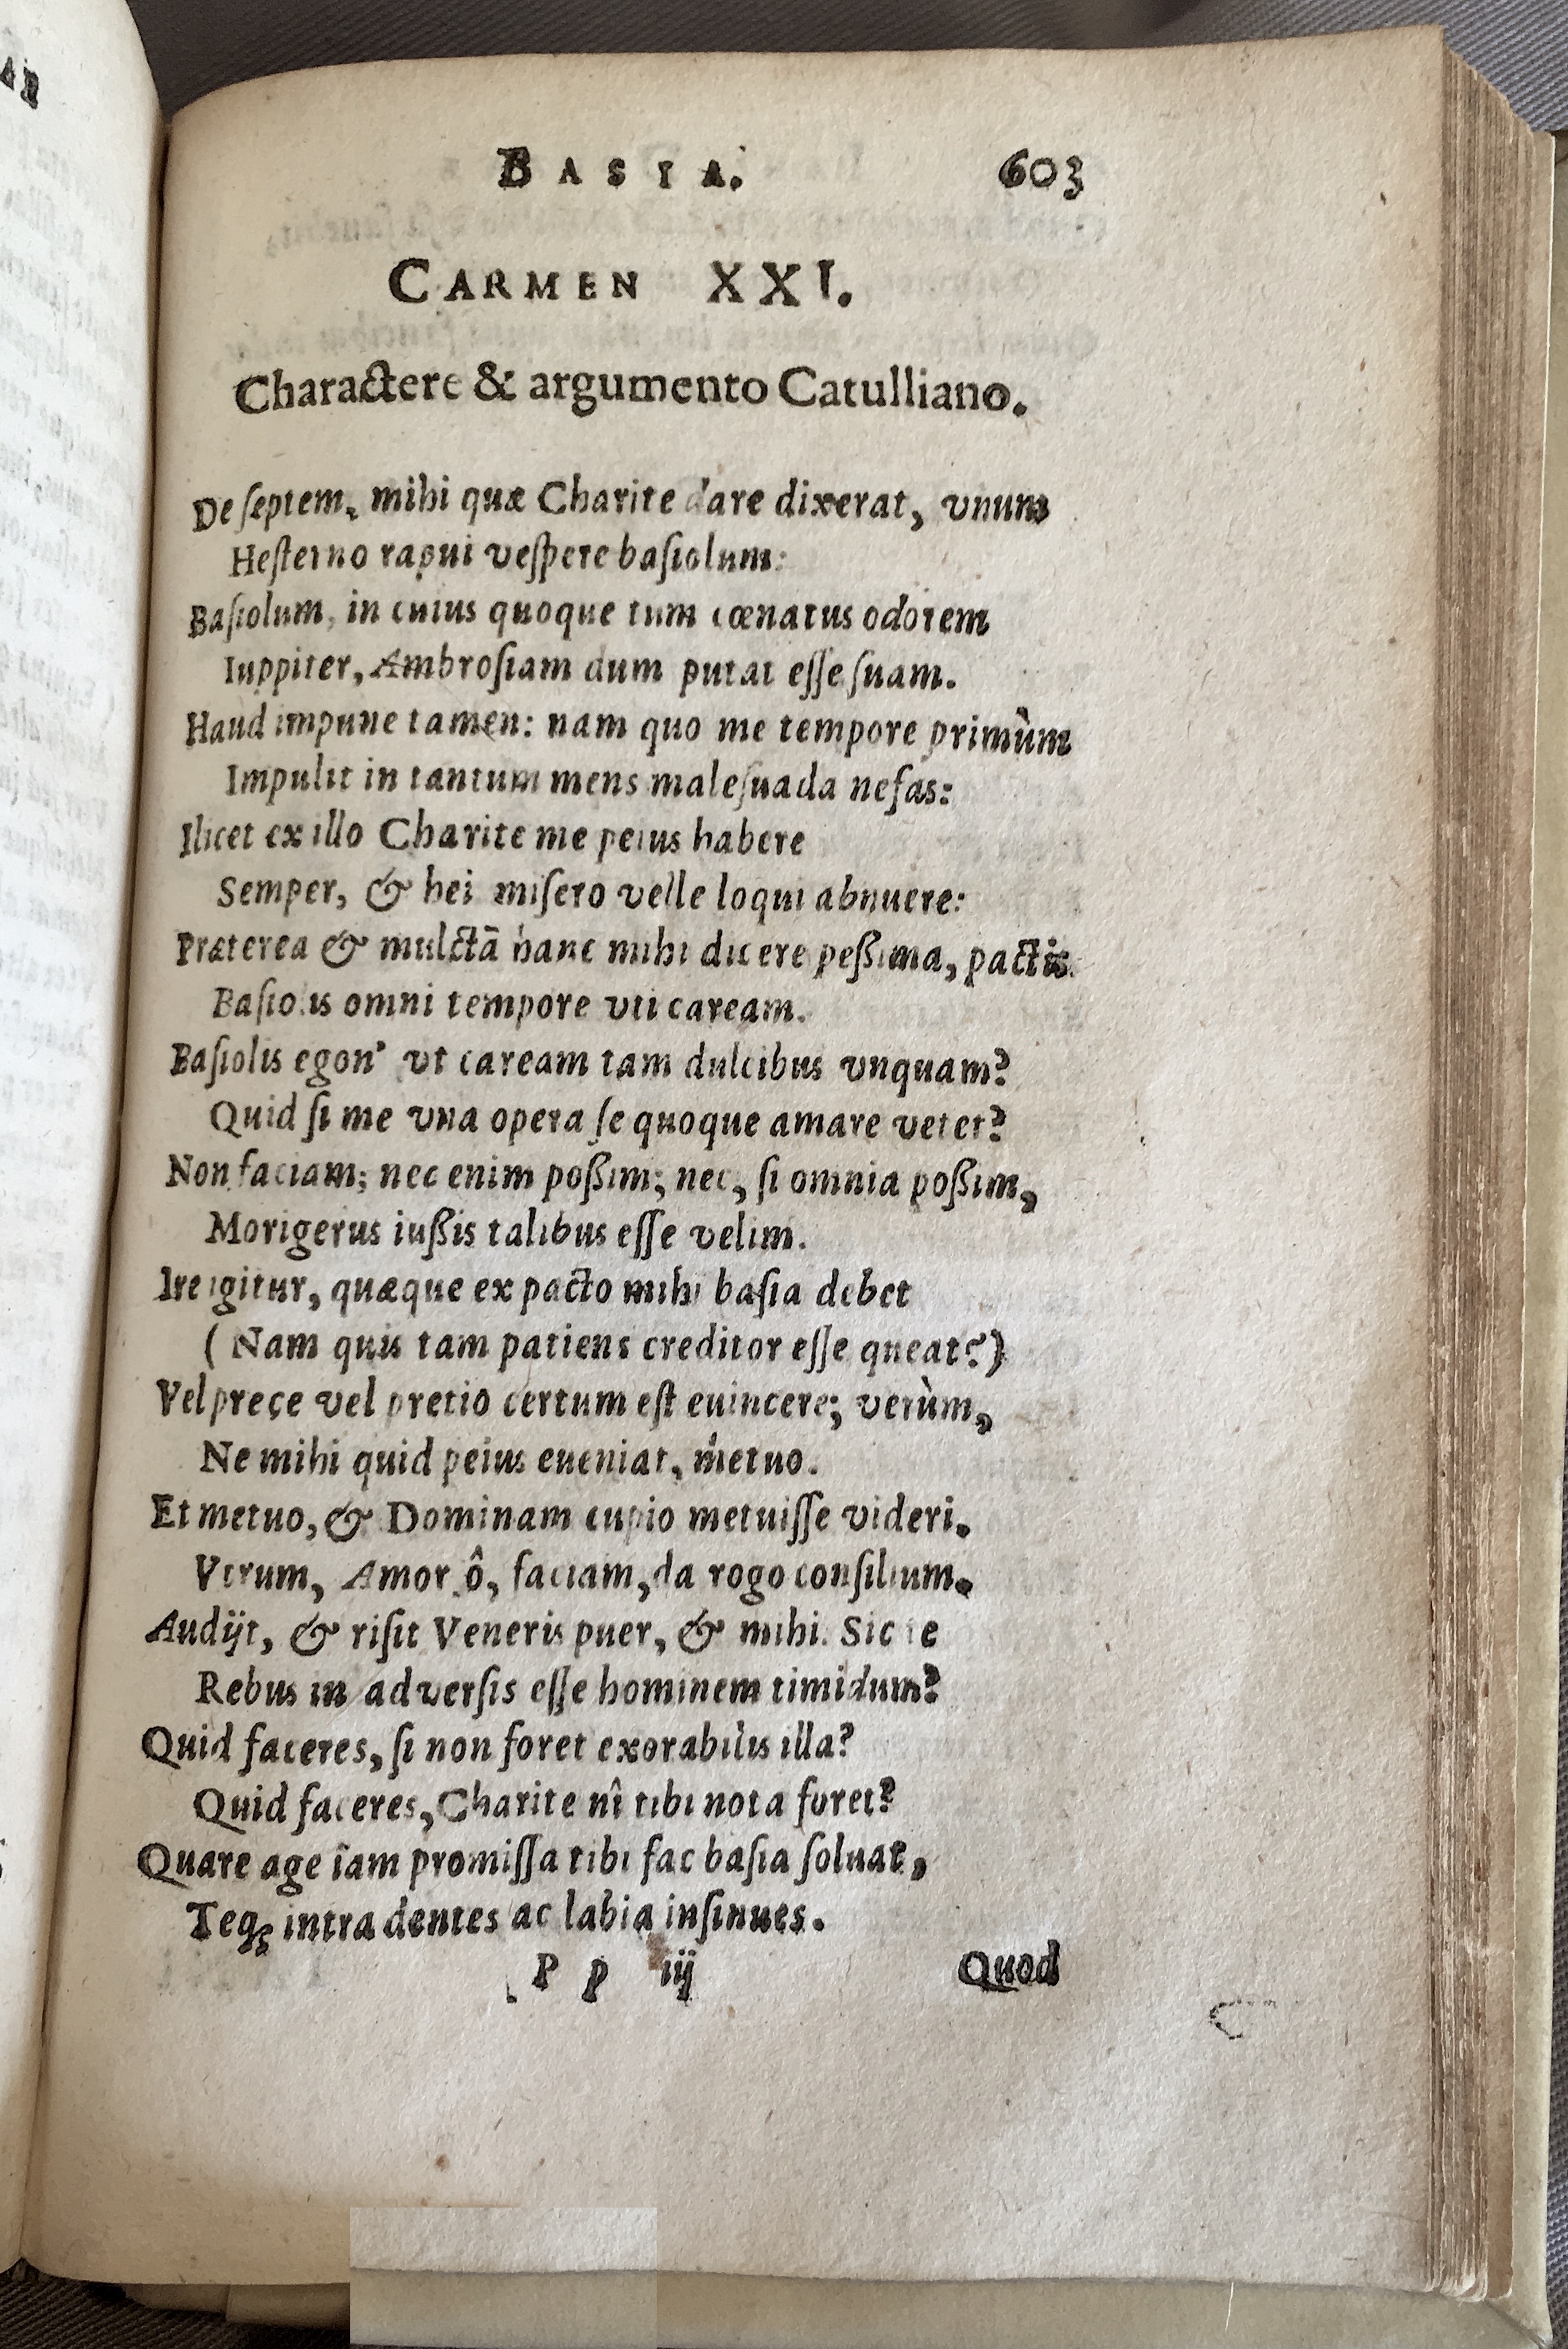 BASIA. 603
CARMEN XXI.
Charactere & argumento Catulliano.
De septem, mihi quæ Charite dare dixerat, vnum
Hesterno rapui vespere basiolum:
Basiolum, in cuius quoque tum cœnatus odorem
Iuppiter, Ambrosiam dum putat esse suam.
Haud impune tamen: nam quo me tempore primùm
Impulit in tantum mens malesuada nefas:
Ilicet ex illo Charite me peius habere
Semper, & hei misero velle loqui abnuere:
Præterea & mulctā hanc mihi dicere peßima, pactis
Basiolis omni tempore vti caream.
Basiolis egon' vt caream tam dulcibus vnquam?
Quid si me vna opera se quoque amare vetet?
Non faciam; nec enim poßim; nec, si omnia poßim,
Morigerus iußis talibus esse velim.
Ire igitur, quæque ex pacto mihi basia debet
(Nam quis tam patiens creditor esse queat?)
Vel prece vel pretio certum est euincere; verùm,
Ne mihi quid peius eueniat, metuo.
Et metuo, & Dominam cupio metuisse videri.
Vtrum, Amor ô, faciam, da rogo consilium.
Audijt, & risit Veneris puer, & mihi. Sic te
Rebus in adversis esse hominem timidum?
Quid faceres, si non foret exorabilis illa?
Quid faceres, Charite nî tibi nota foret?
Quare age iam promissa tibi fac basia soluat,
Teq; intra dentes ac labia insinues.
P p iij Quod